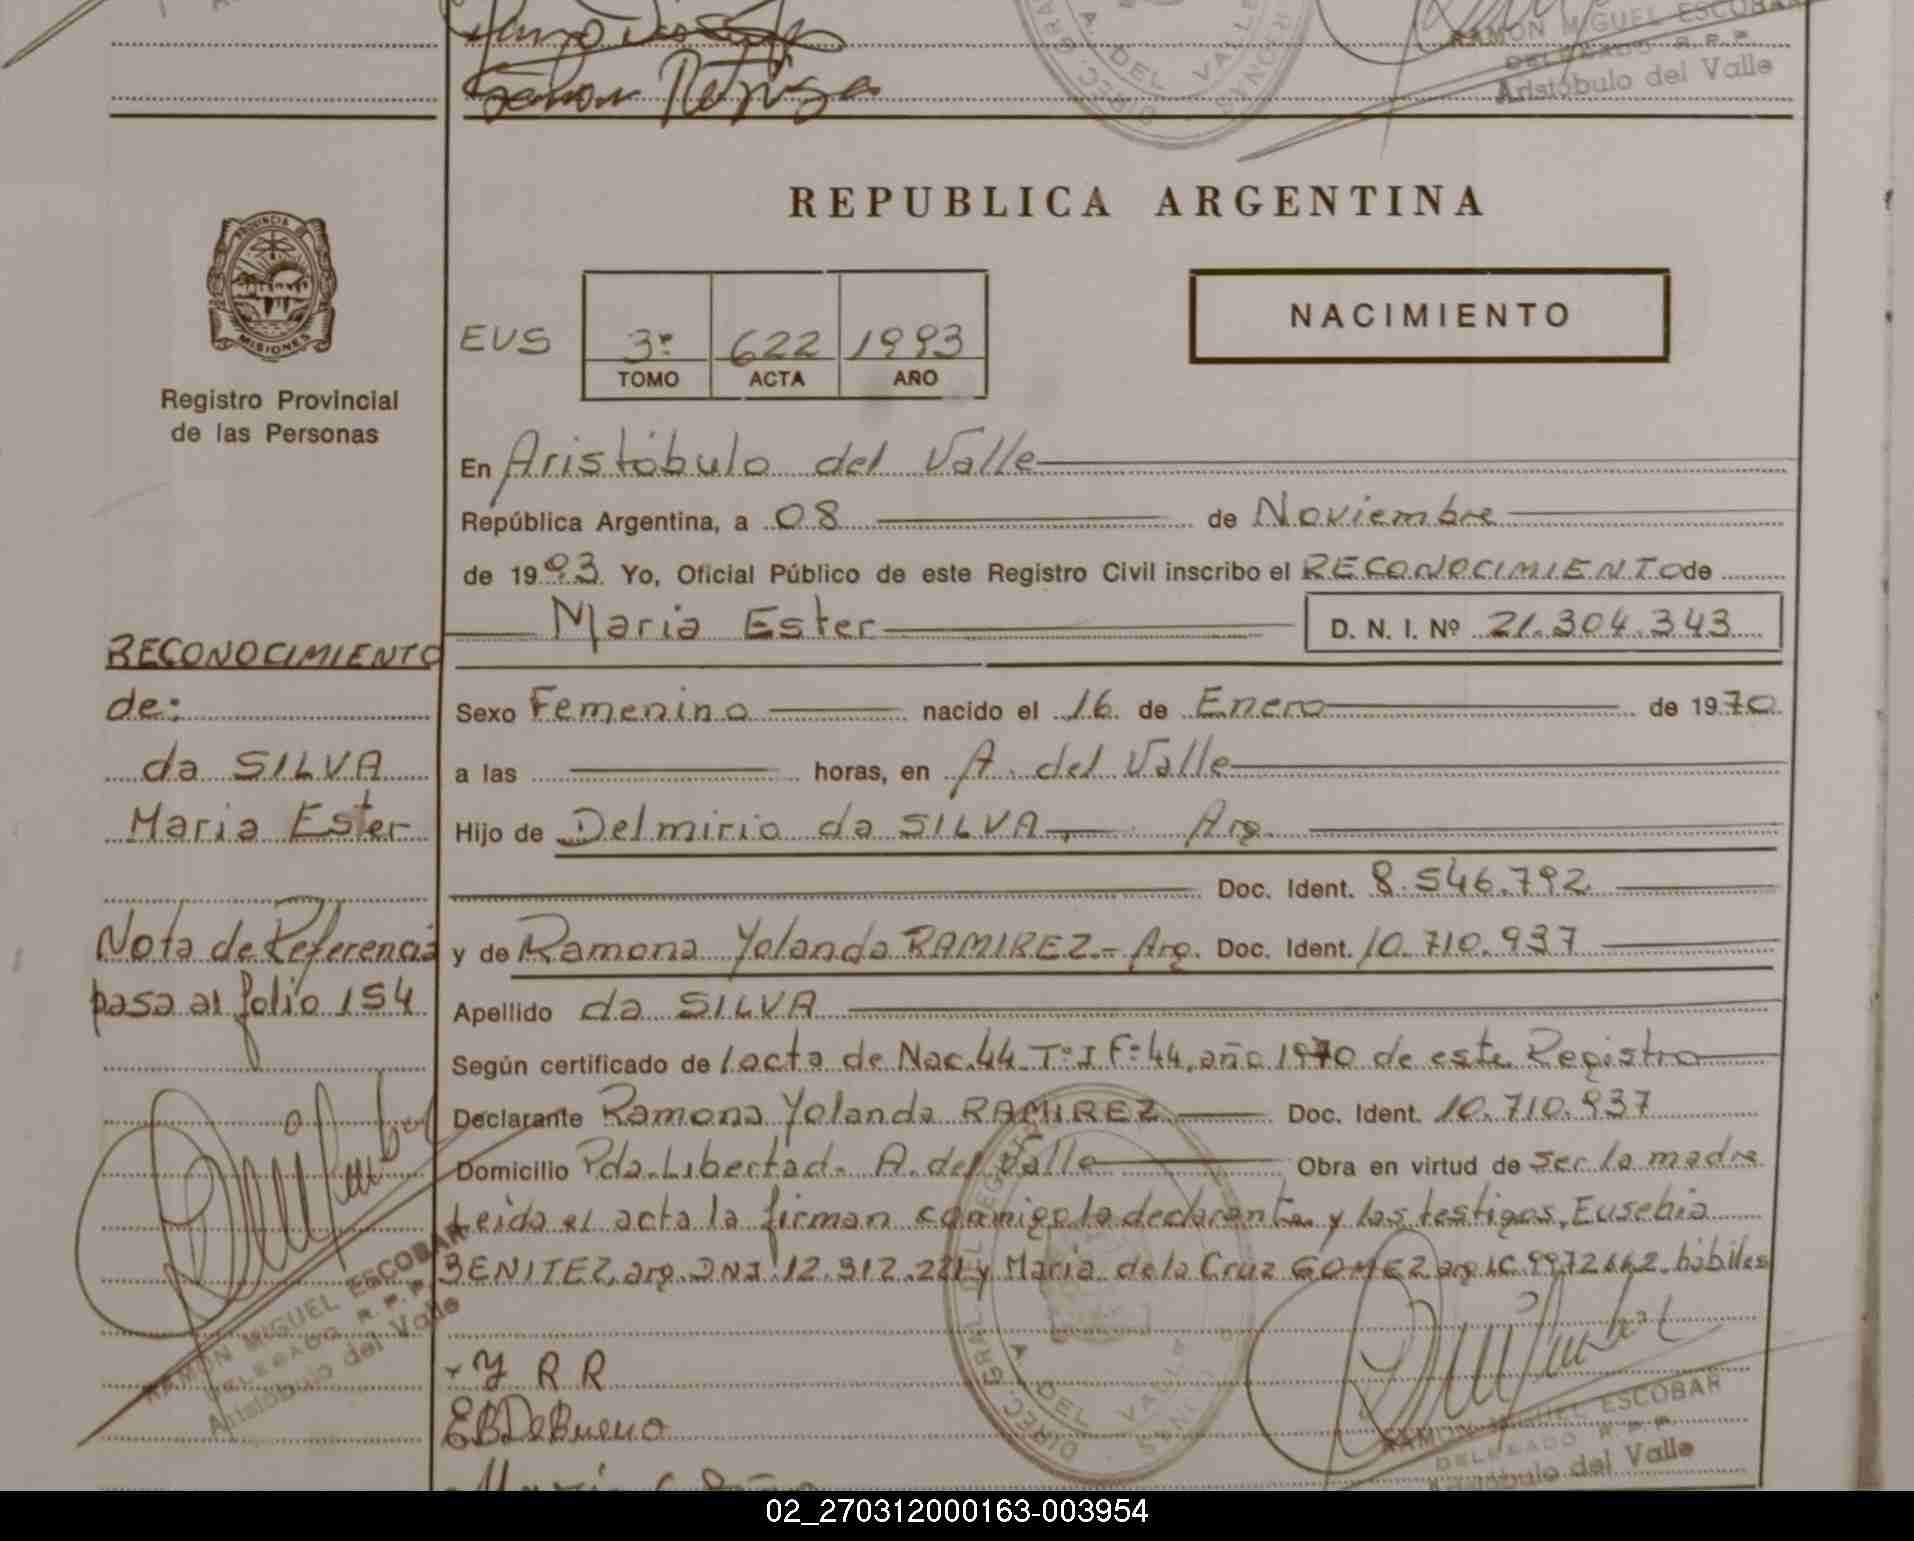 Ramon
RAMON MIGUEL ESCOBAR
DELEGADO R.P.P.
Aristóbulo del Valle
A. DEL VALLE
REPUBLICA ARGENTINA
PROVINCIA DE
MISIONES
Registro Provincial
de las Personas
NACIMIENTO
EUS 3º 622 1993
TOMO ACTA AÑO
En Aristóbulo del Valle
República Argentina, a 08 de Noviembre
de 1993 Yo, Oficial Público de este Registro Civil inscribo el RECONOCIMIENTO de
Maria Ester D. N. I. Nº 21.304.343
Sexo Femenino nacido el 16 de Enero de 1970
a las horas, en A. del Valle
Hijo de Delmirio da SILVA, Arg.
Doc. Ident. 8.546.792
y de Ramona Yolanda RAMIREZ.- Arg. Doc. Ident. 10.710.937
Apellido da SILVA
Según certificado de l acta de Nac.44 Tº I Fº 44, año 1970 de este Registro
Declarante Ramona Yolanda RAMIREZ Doc. Ident. 10.710.937
Domicilio Pda. Libertad- A. del Valle Obra en virtud de ser la madre
Leida el acta la firman conmigo la declarante y los testigos, Eusebia
BENITEZ, arg. DNI 12.312.221 y Maria de la Cruz GOMEZ arg LC.9972662. hábiles
RECONOCIMIENTO
de:
da SILVA
Maria Ester
Nota de Referencia
pasa al folio 154
RAMON MIGUEL ESCOBAR
DELEGADO R.P.P.
Aristóbulo del Valle
Y R R
EBDeBueno
A. DEL VALLE
RAMON MIGUEL ESCOBAR
DELEGADO R.P.P.
Aristóbulo del Valle
02_270312000163-003954